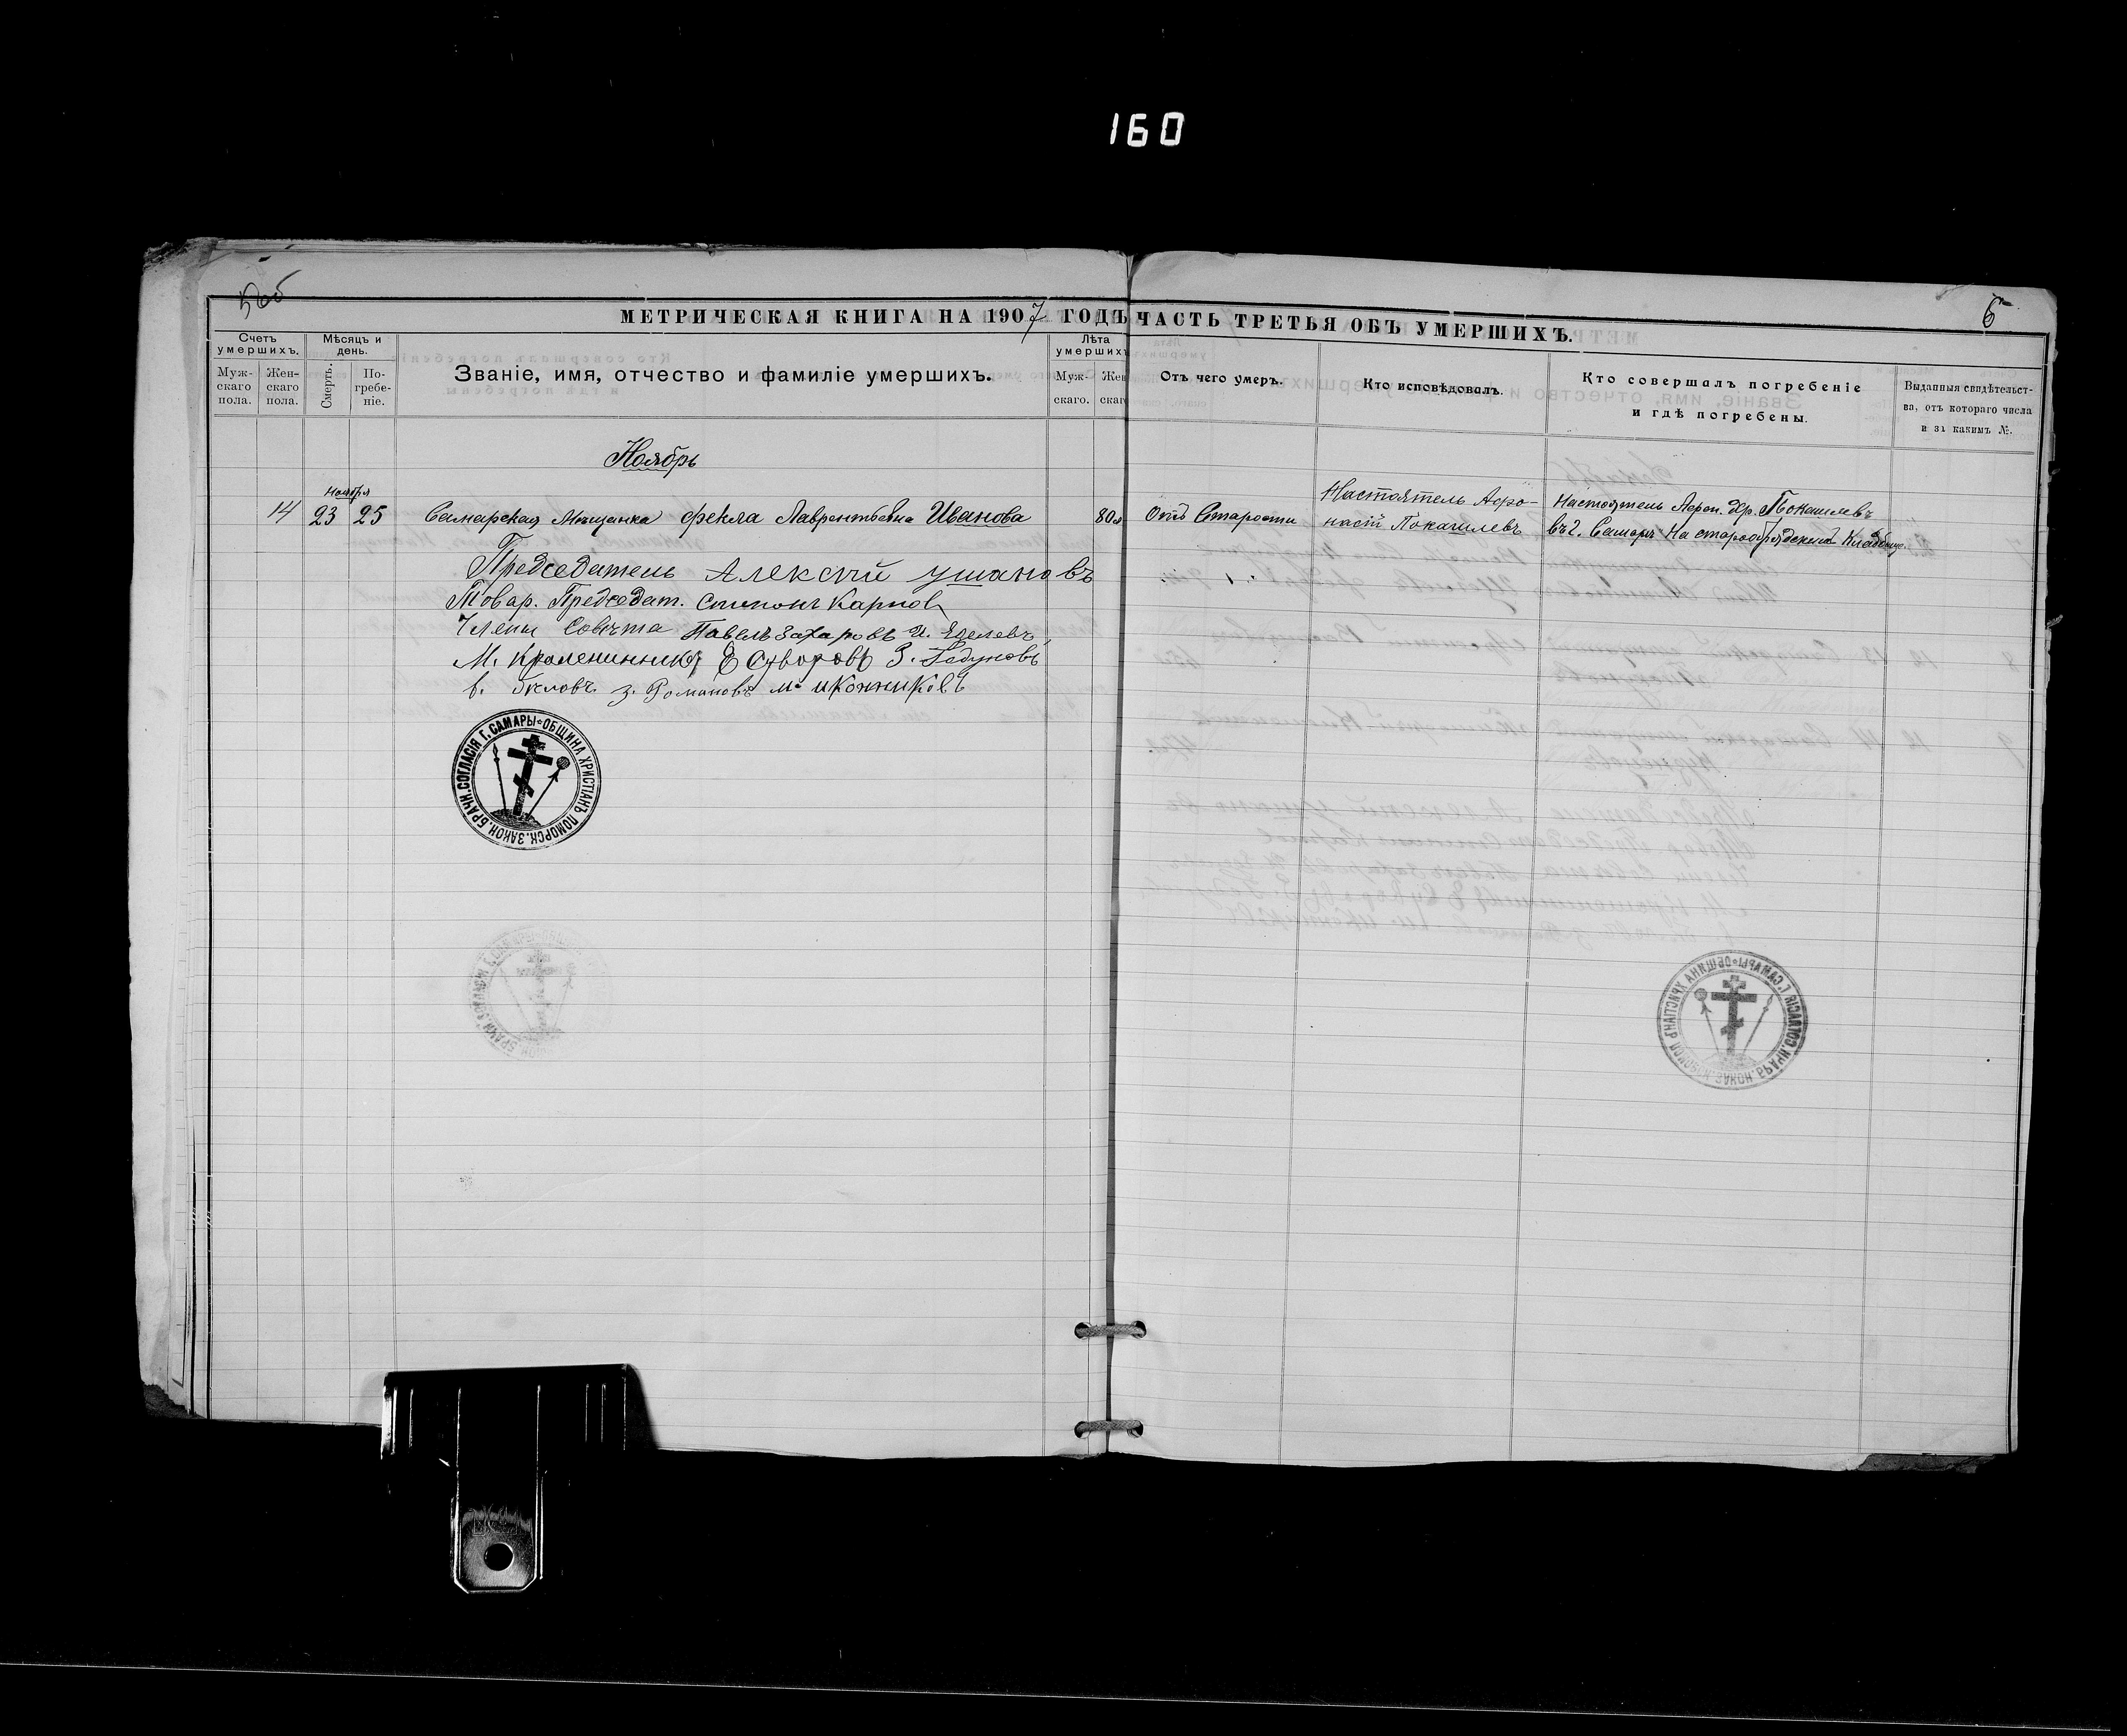 160
5об
6
МЕТРИЧЕСКАЯ КНИГА НА 1907 ГОДЪ ЧАСТЬ ТРЕТЬЯ ОБЪ УМЕРШИХЪ.
Счетъ умершихъ.
Муж-скаго пола.
Жен-скаго пола.
Мѣсяцъ и день.
Смерть.
По-гребе-ніе.
Званіе, имя, отчество и фамиліе умершихъ.
Лѣта умершихъ
Муж-скаго.
Жен скаг
Отъ чего умеръ.
Кто исповѣдовалъ.
Кто совершалъ погребеніе
и гдѣ погребены.
Выданныя свидѣтельст-
ва, отъ котораго числа
и за какимъ №.
Ноябрь
Ноября
14 23 25 Самарская Мѣщанка Фекла Лаврентьевна Иванова 80 Отъ Старости
Настоятель Афо-
насій Покашлевъ
Настоятель
въ г. Самарѣ На старообрядскомъ Кладбище.
Предсѣдатель Алексѣй Ушановъ
Товар. Предсѣдат. Карпов
Члены Совѣта Павелъ Захаровъ И.
М. Е Суворовъ З.
з. Романовъ м. иконниковъ
ОБЩИНА ХРИСТІАНЪ ПОМОРСК. ЗАКОН. БРАЧН. СОГЛАСІЯ Г. САМАРЫ